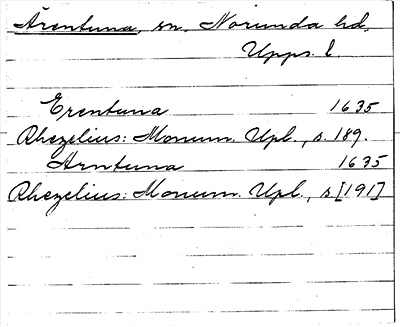 Ärentuna, sn, Norunda hd,
Upps. l.
Erentuna 1635
Rhezelius: Monum. Upl., s. 189.
Arntuna 1635
Rhezelius: Monum. Upl., s [191]